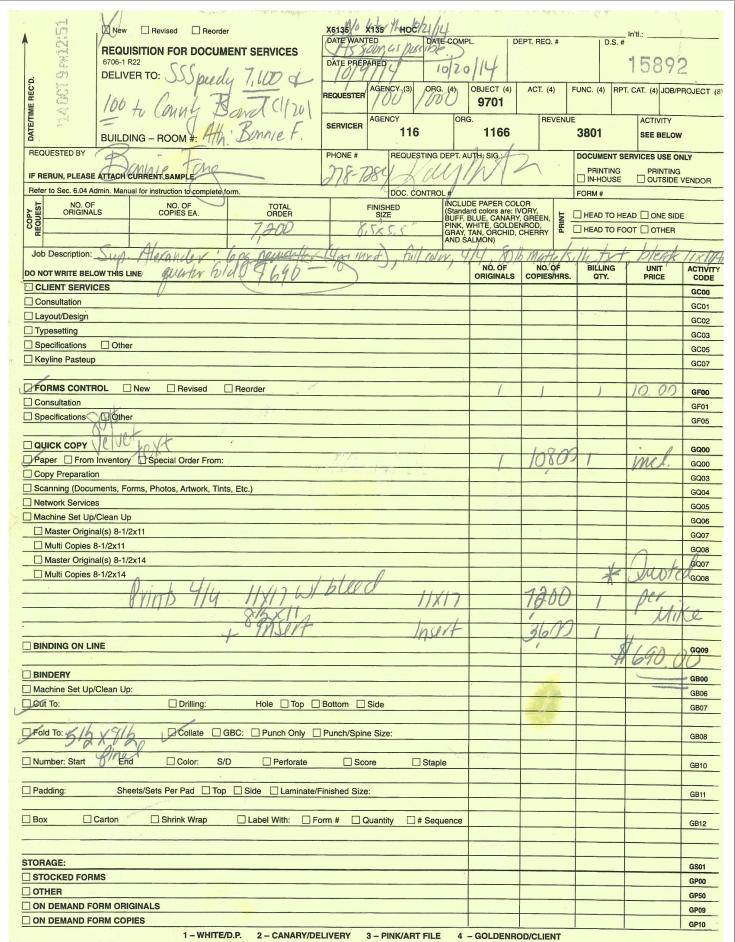 New Revised Reorder
X6135 X135 HOC
No later than 10/21/14
Int'l.:
REQUISITION FOR DOCUMENT SERVICES
6706-1 R22
DATE WANTED
As soon as possible
DATE COMPL.
10/20/14
DEPT. REQ. #
D.S. #
15892
DATE/TIME REC'D.
'14 OCT 9 PM 12:51
DELIVER TO: SSSpeedy 7,100 &
100 to County Board (1/20)
BUILDING – ROOM #: Attn: Bonnie F.
DATE PREPARED
10/9/14
REQUESTER
AGENCY (3)
100
ORG. (4)
1000
OBJECT (4)
9701
ACT. (4)
FUNC. (4)
RPT. CAT. (4)
JOB/PROJECT (8)
SERVICER
AGENCY
116
ORG.
1166
REVENUE
3801
ACTIVITY
SEE BELOW
REQUESTED BY
Bonnie
IF RERUN, PLEASE ATTACH CURRENT SAMPLE.
PHONE #
278-7284
REQUESTING DEPT. AUTH. SIG.:
DOCUMENT SERVICES USE ONLY
PRINTING IN-HOUSE
PRINTING OUTSIDE VENDOR
Refer to Sec. 6.04 Admin. Manual for instruction to complete form.
DOC. CONTROL #
FORM #
COPY REQUEST
NO. OF ORIGINALS
NO. OF COPIES EA.
TOTAL ORDER
7,200
FINISHED SIZE
8.5x5.5"
INCLUDE PAPER COLOR
(Standard colors are: IVORY, BUFF, BLUE, CANARY, GREEN, PINK, WHITE, GOLDENROD, GRAY, TAN, ORCHID, CHERRY AND SALMON)
PRINT
HEAD TO HEAD ONE SIDE
HEAD TO FOOT OTHER
Job Description: Sup. Alexander: 6 pg newsletter, full color, 4/4, 80lb matte/silk txt, bleeds 11x17
quarter fold $690
DO NOT WRITE BELOW THIS LINE
NO. OF ORIGINALS
NO. OF COPIES/HRS.
BILLING QTY.
UNIT PRICE
ACTIVITY CODE
CLIENT SERVICES GC00
Consultation GC01
Layout/Design GC02
Typesetting GC03
Specifications Other GC05
Keyline Pasteup GC07
FORMS CONTROL New Revised Reorder 1 1 1 10.00 GF00
Consultation GF01
Specifications Other GF05
80# Velvet text
QUICK COPY GQ00
Paper From Inventory Special Order From: 1 10800 1 incl. GQ00
Copy Preparation GQ03
Scanning (Documents, Forms, Photos, Artwork, Tints, Etc.) GQ04
Network Services GQ05
Machine Set Up/Clean Up GQ06
Master Original(s) 8-1/2x11 GQ07
Multi Copies 8-1/2x11 GQ08
Master Original(s) 8-1/2x14 GQ07
Multi Copies 8-1/2x14 GQ08
* Quoted per Mike
Prints 4/4 11x17 w/ bleed 11x17 7200 1
8½x11
+ Insert Insert 3600 1
BINDING ON LINE GQ09
$690.00
BINDERY GB00
Machine Set Up/Clean Up: GB06
Cut To: Drilling: Hole Top Bottom Side GB07
Fold To: 5½ x 8½ final Collate GBC: Punch Only Punch/Spine Size: GB08
Number: Start End Color: S/D Perforate Score Staple GB10
Padding: Sheets/Sets Per Pad Top Side Laminate/Finished Size: GB11
Box Carton Shrink Wrap Label With: Form # Quantity # Sequence GB12
STORAGE: GS01
STOCKED FORMS GP00
OTHER GP50
ON DEMAND FORM ORIGINALS GP09
ON DEMAND FORM COPIES GP10
1 – WHITE/D.P. 2 – CANARY/DELIVERY 3 – PINK/ART FILE 4 – GOLDENROD/CLIENT